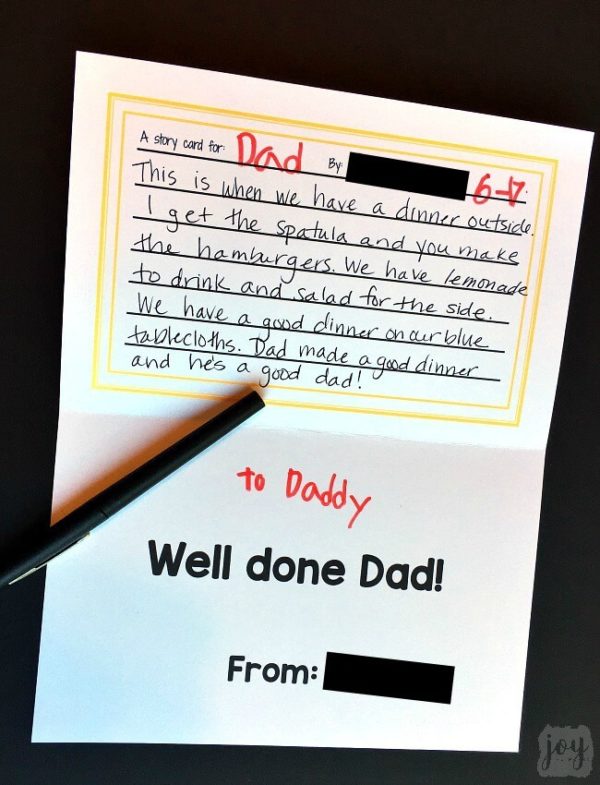 A story card for: Dad By: 6-17
This is when we have a dinner outside.
I get the spatula and you make
the hamburgers. We have lemonade
to drink and salad for the side.
We have a good dinner on our blue
tablecloths. Dad made a good dinner
and he's a good dad!
to Daddy
Well done Dad!
From:
joy